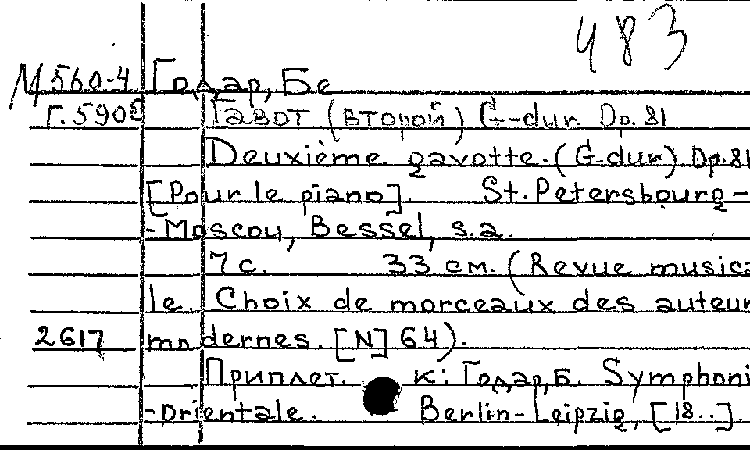 483
М 560-4 Годар, Бе
Г.590 Гавот (второй) G-dur. Op. 81
Deuxième gavotte. (G-dur) Op. 81
[Pour le piano]. St. Petersbourg -
- Moscou, Bessel, s.a.
7 с. 33 см. (Revue musica
le. Choix de morceaux des auteur
2617 modernes. [N] 64).
Приплет. к: Годар, Б. Symphoni
- orientale. Berlin-Leipzig, [18..].